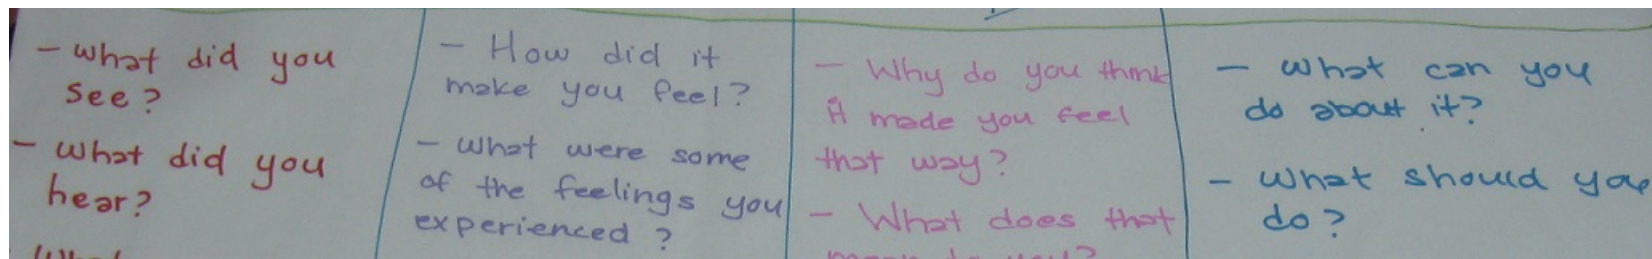 - What did you
see?
- What did you
hear?
What
- How did it
make you feel?
- What were some
of the feelings you
experienced?
- Why do you think
it made you feel
that way?
- What does that
mean to you?
- What can you
do about it?
- What should you
do?